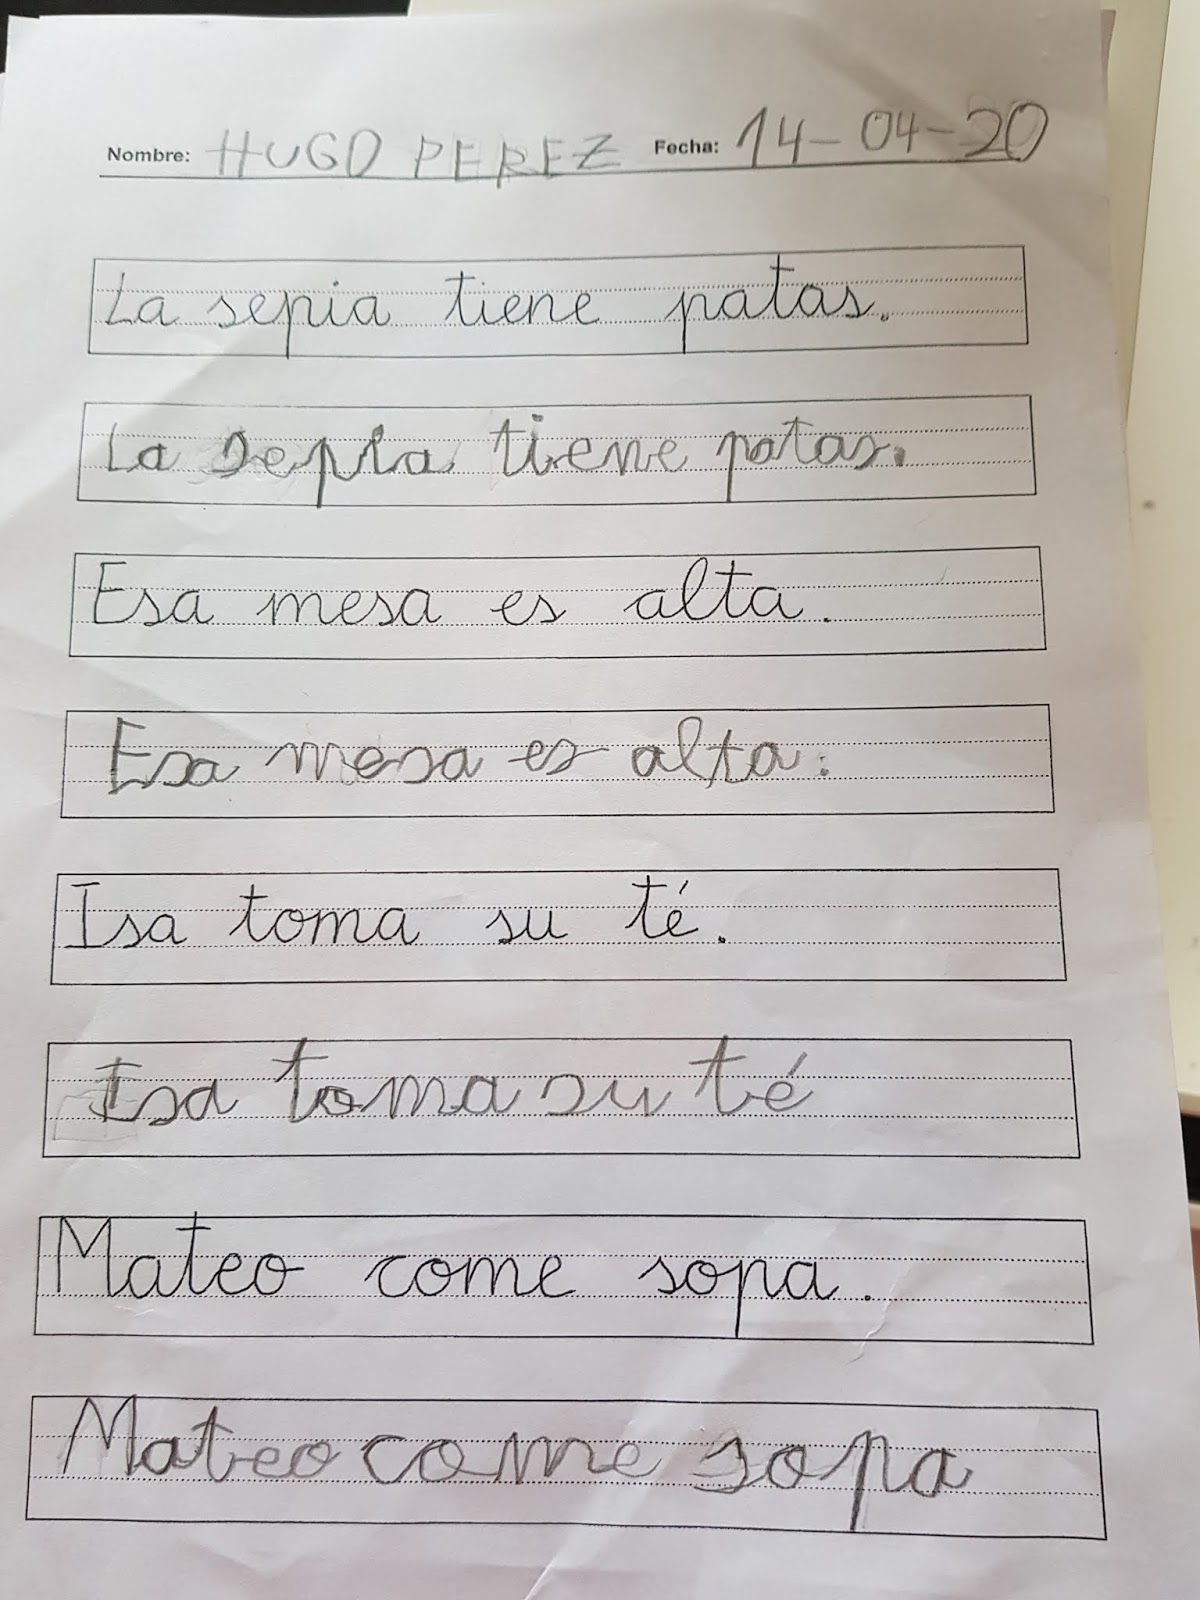 Nombre: HUGO PEREZ Fecha: 14-04-20
La sepia tiene patas.
La sepia tiene patas.
Esa mesa es alta.
Esa mesa es alta.
Isa toma su té.
Isa toma su té
Mateo come sopa.
Mateo come sopa